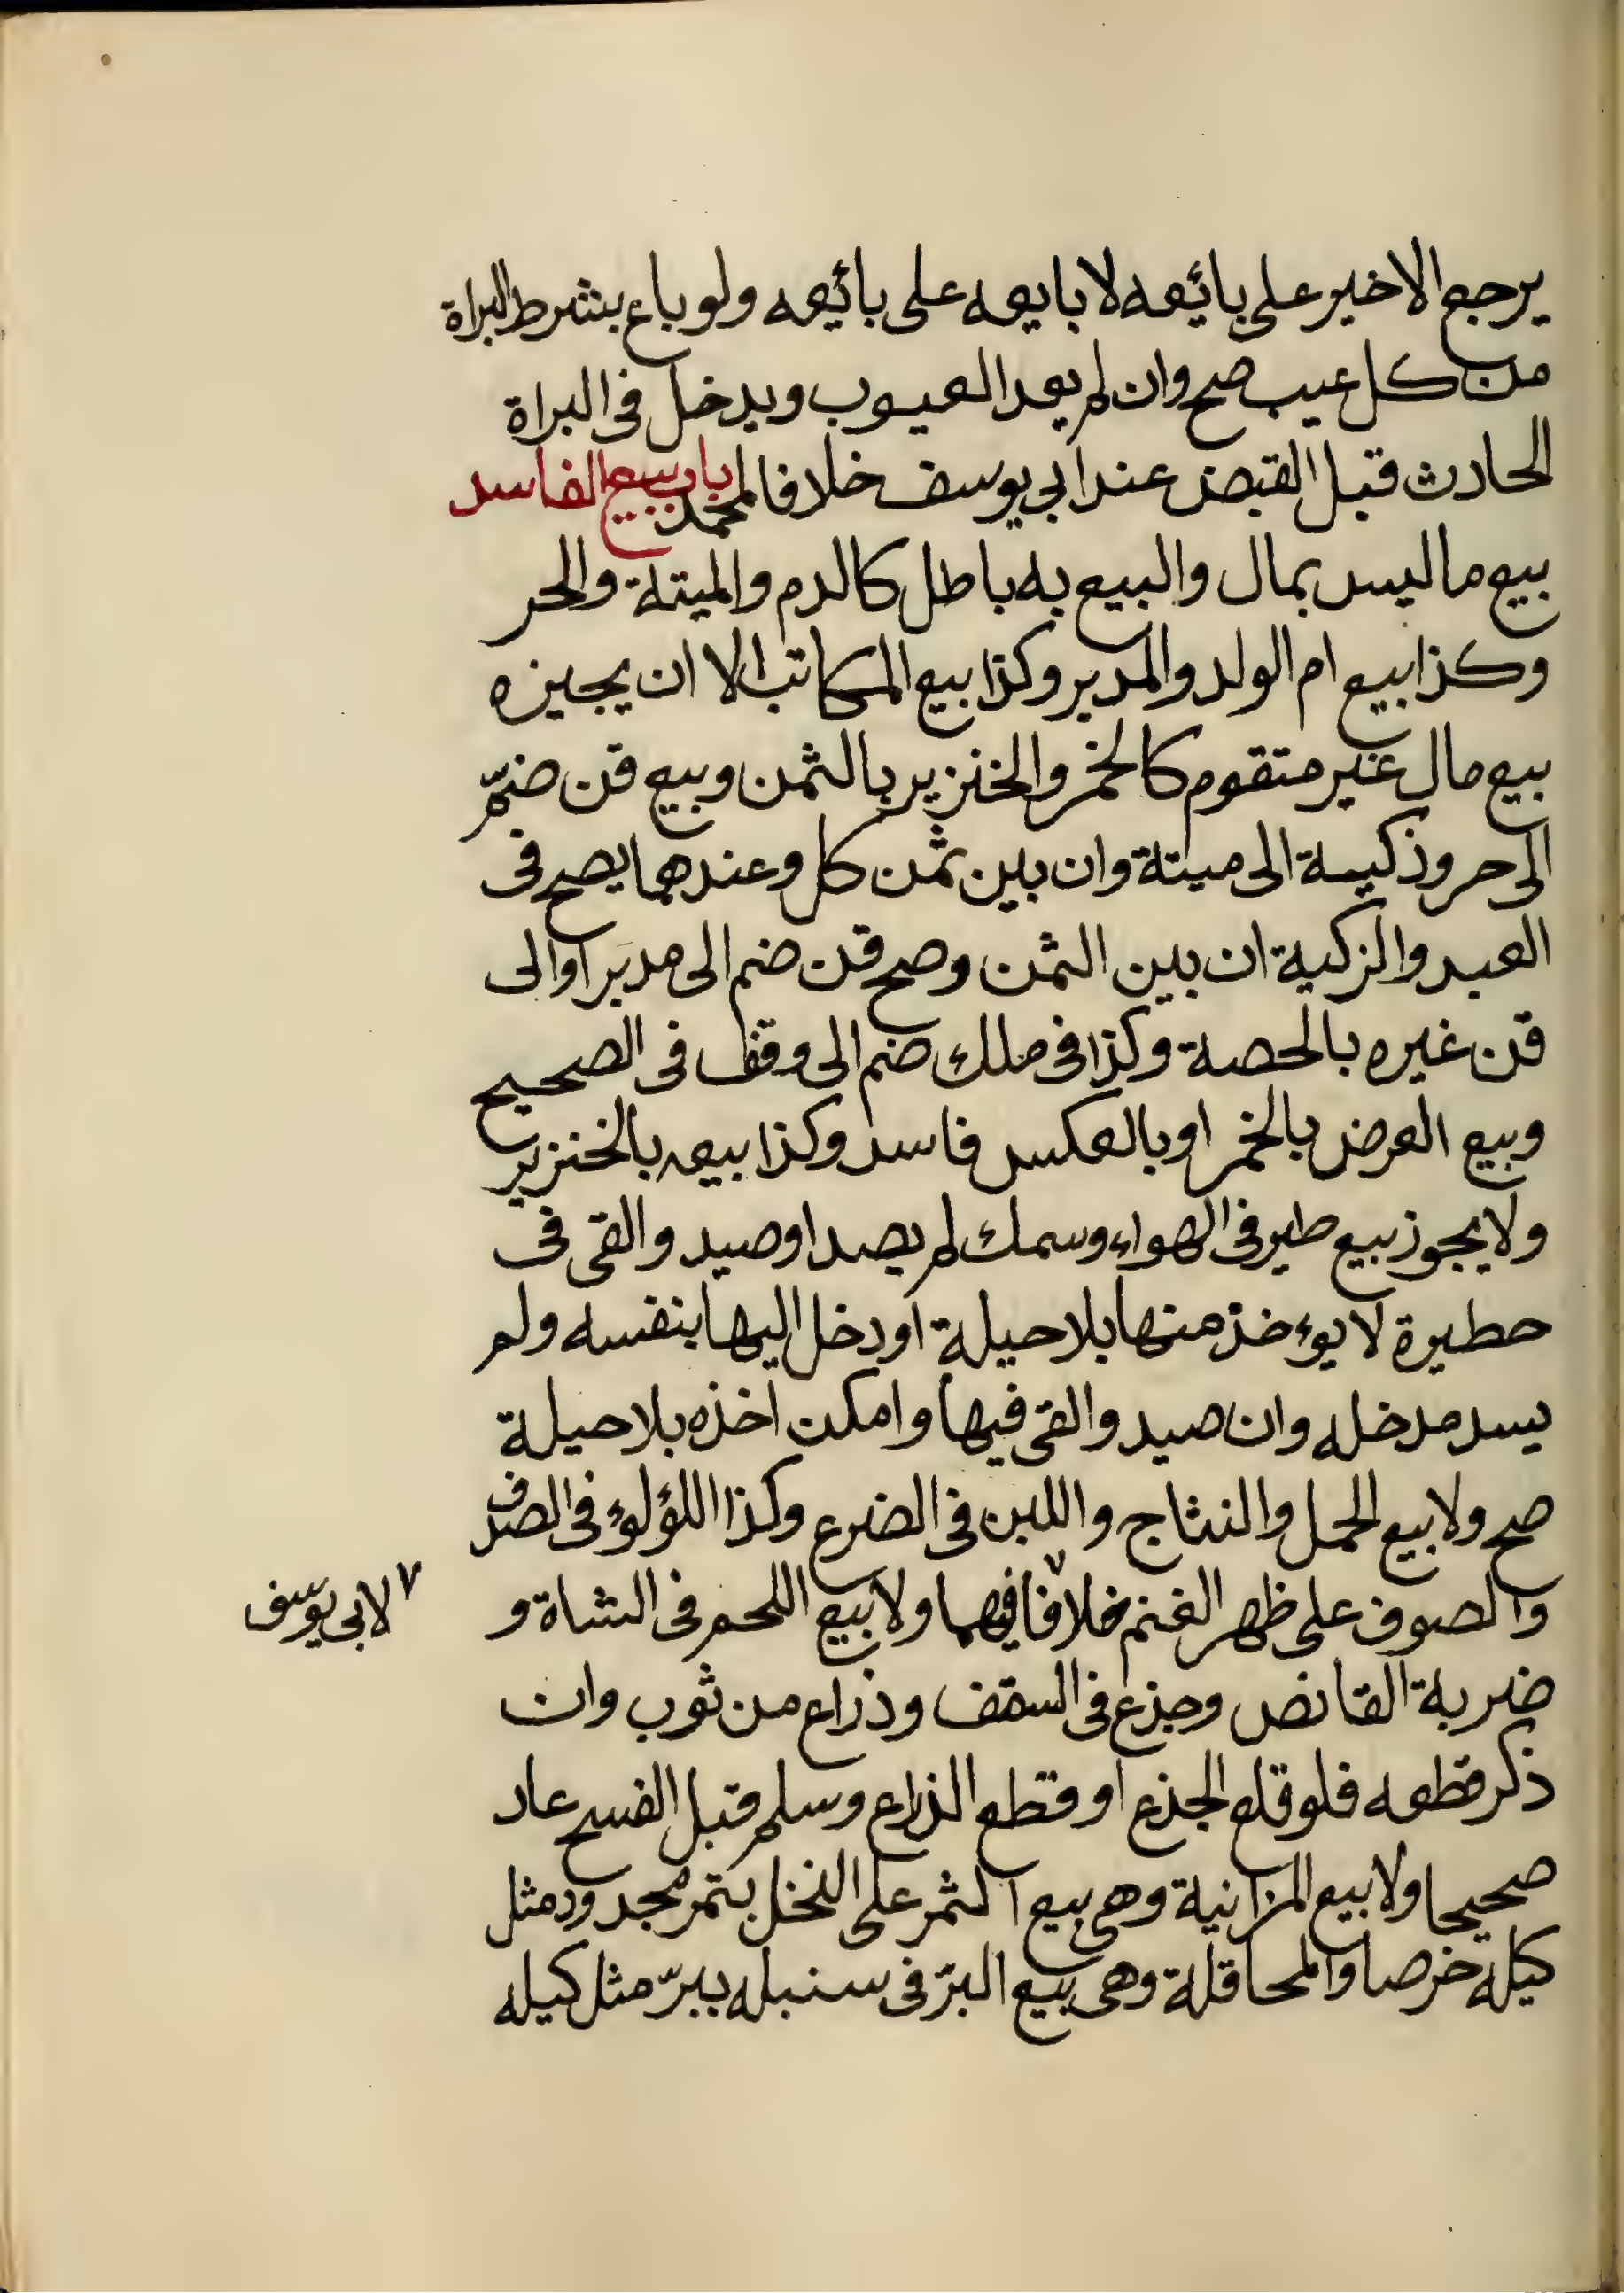 يرجع الاخير على بائعه لا بايعه على بائعه ولو باع بشرط البراة
من كل عيب صح وان لم يعد العيوب ويدخل فى البراة
الحادث قبل القبض عند ابي يوسف خلافا لمحمد باب بيع الفاسد
بيع ما ليس بمال والبيع به باطل كالدم والميتة والحر
وكذا بيع ام الولد والمدبر وكذا بيع المكاتب الا ان يجيزه
بيع مال غير متقوم كالخمر والخنزير بالثمن وبيع قن ضمّ
الى حر وذكيسة الى ميتة وان بين ثمن كل وعندهما يصح فى
العبد والزكية ان بين الثمن وصح قن ضم الى مدبر او الى
قن غيره بالحصة وكذا فى ملك ضم الى وقف فى الصحيح
وبيع العرض بالخمر او بالعكس فاسد وكذا بيعه بالخنزير
ولا يجوز بيع طير فى الهواء وسمك لم يصد او صيد والقى فى
حطيرة لا يوءخذ منها بلا حيلة او دخل اليها بنفسه ولم
يسد مدخله وان صيد والقى فيها وامكن اخذه بلا حيلة
صح ولا بيع الحمل والنتاج واللبن فى الضرع وكذا اللؤلوء فى الصدف
والصوف على ظهر الغنم خلافا٧ فيهما ولا بيع اللحم فى الشاة و
٧ لابى يوسف
ضربة القانص وجذع فى السقف وذراع من ثوب وان
ذكر قطعه فلو قلع الجذع او قطع الذراع وسلم قبل الفسح عاد
صحيحا ولا بيع المزانية وهى بيع الثمر على النخل بتمر مجدود مثل
كيله خرصا والمحاقلة وهى بيع البرّ فى سنبله ببرّ مثل كيله